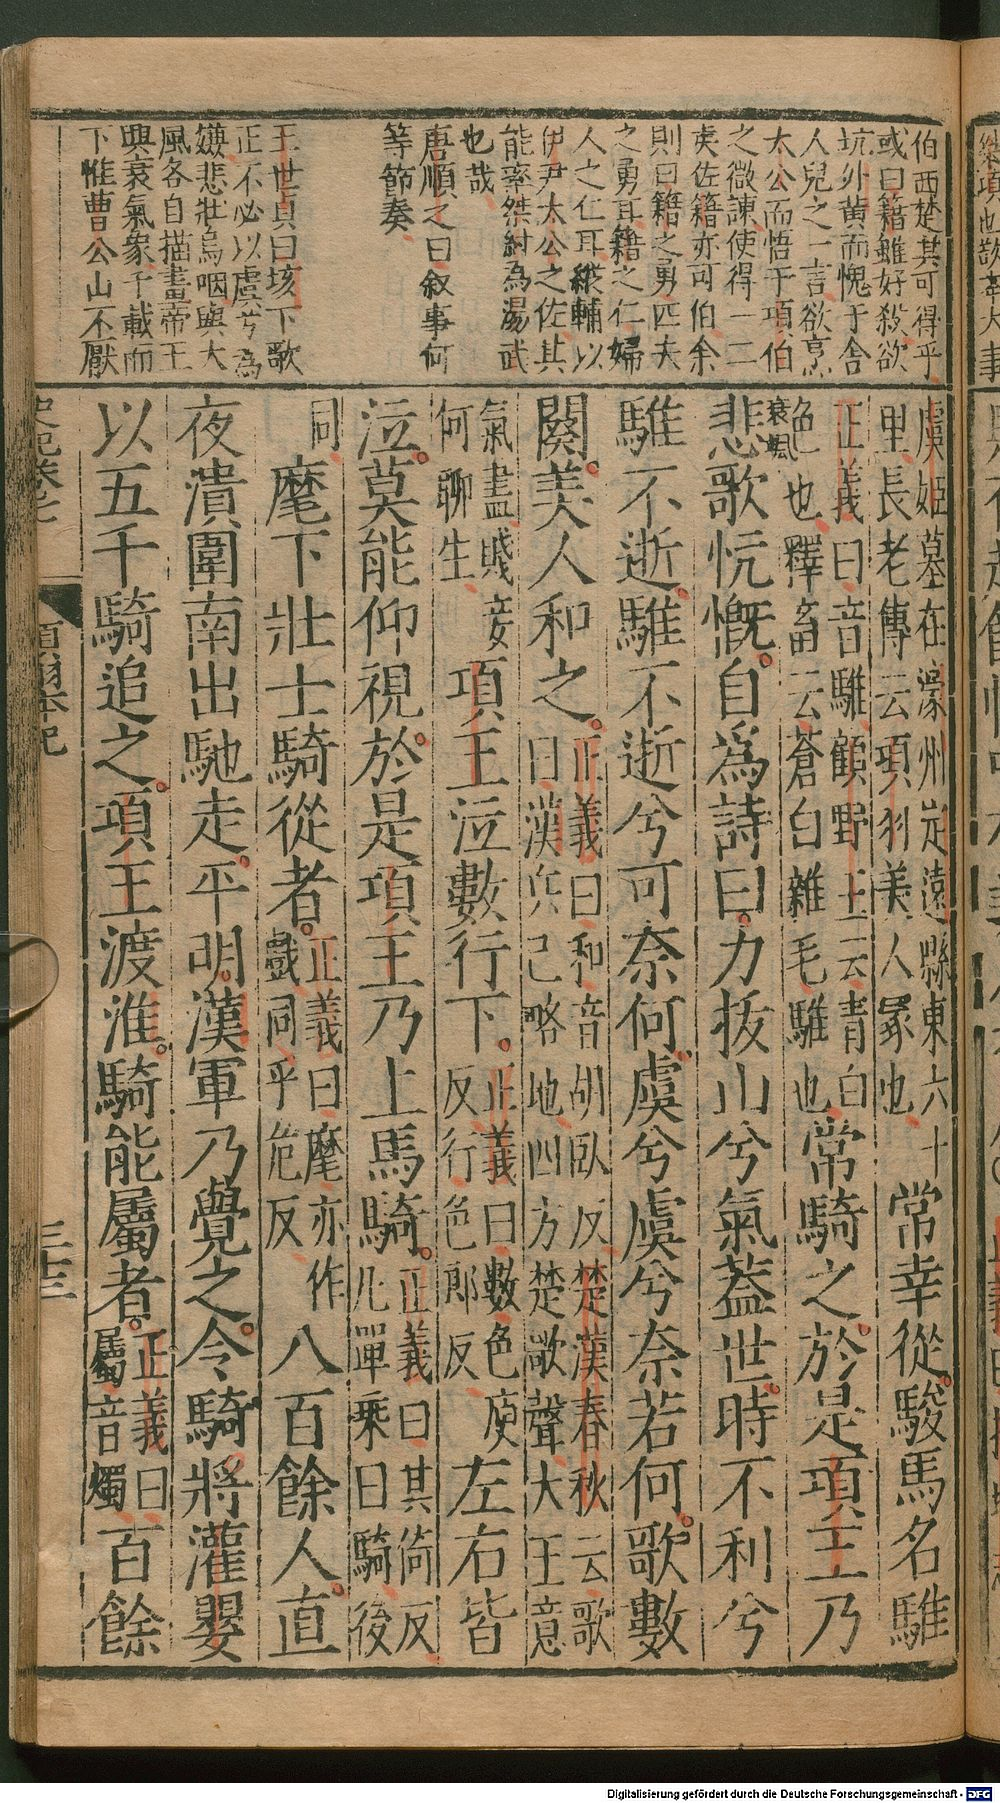 伯西楚其可得乎
或曰籍雖好殺欲
坑外黃而愧于舍
人兒之一言欲烹
太公而悟于項伯
之微諫使得一二
矦佐籍亦可伯余
則曰籍之勇匹夫
之勇耳籍之仁婦
人之仁耳縱輔以
伊尹太公之佐其
能率桀紂為湯武
也哉
唐順之曰敘事何
等節奏
王世貞曰垓下歌
正不必以虞兮為
嫌悲壯烏咽與大
風各自描畫帝王
興衰氣象千載而
下惟曹公山不厭
虞姬墓在濠州定遠縣東六十
里長老傳云項羽美人冢也
常幸從駿馬名騅
正義曰音騅顧野王云青白
色也釋畜云蒼白雜毛騅也
常騎之於是項王乃
悲歌忼慨自爲詩曰力拔山兮氣蓋世時不利兮
衰颯
騅不逝騅不逝兮可奈何虞兮虞兮奈若何歌數
闋美人和之
正義曰和音胡臥反楚漢春秋云歌
曰漢兵已略地四方楚歌聲大王意
氣盡賤妾
何聊生
項王泣數行下
正義曰數色庾
反行色郎反
左右皆
泣莫能仰視於是項王乃上馬騎
正義曰其倚反
凡單乘曰騎後
同
麾下壯士騎從者
正義曰麾亦作
戲同乎危反
八百餘人直
夜潰圍南出馳走平明漢軍乃覺之令騎將灌嬰
以五千騎追之項王渡淮騎能屬者
正義曰
屬音燭
百餘
史記卷七
項羽本紀
三十三
Digitalisierung gefördert durch die Deutsche Forschungsgemeinschaft - DFG